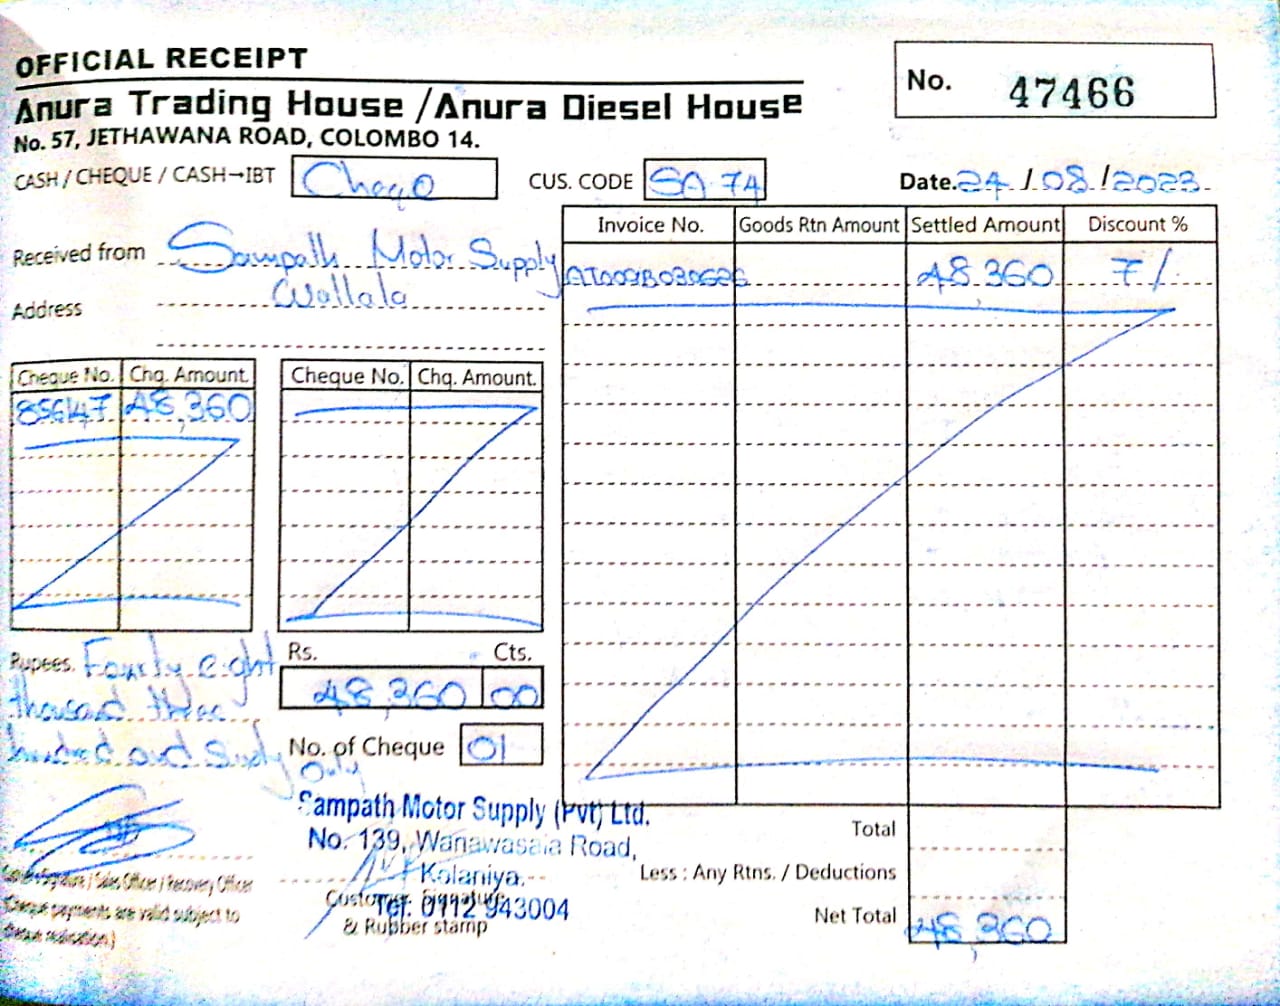 OFFICIAL RECEIPT
Anura Trading House / Anura Diesel House
No. 57, JETHAWANA ROAD, COLOMBO 14.
No. 47466
CASH / CHEQUE / CASH→IBT Cheqe
CUS. CODE SA 74
Date. 24 / 08 / 2023
Received from Sampath Motor Supply
Address Wallala
Invoice No. Goods Rtn Amount Settled Amount Discount %
48,360 7/.
Cheque No. Chq. Amount.
856147 48,360
Cheque No. Chq. Amount.
Rupees. Fourty eight
thousand three
hundred and sixty
only
Rs. Cts.
48,360 00
No. of Cheque 01
Sampath Motor Supply (Pvt) Ltd.
No. 139, Wanawasala Road,
Kelaniya.
Tel: 0112 943004
Customer Signature
& Rubber stamp
Signature / Sales Officer / Recovery Officer
(Cheque payments are valid subject to
cheque realication.)
Total
Less : Any Rtns. / Deductions
Net Total 48,360